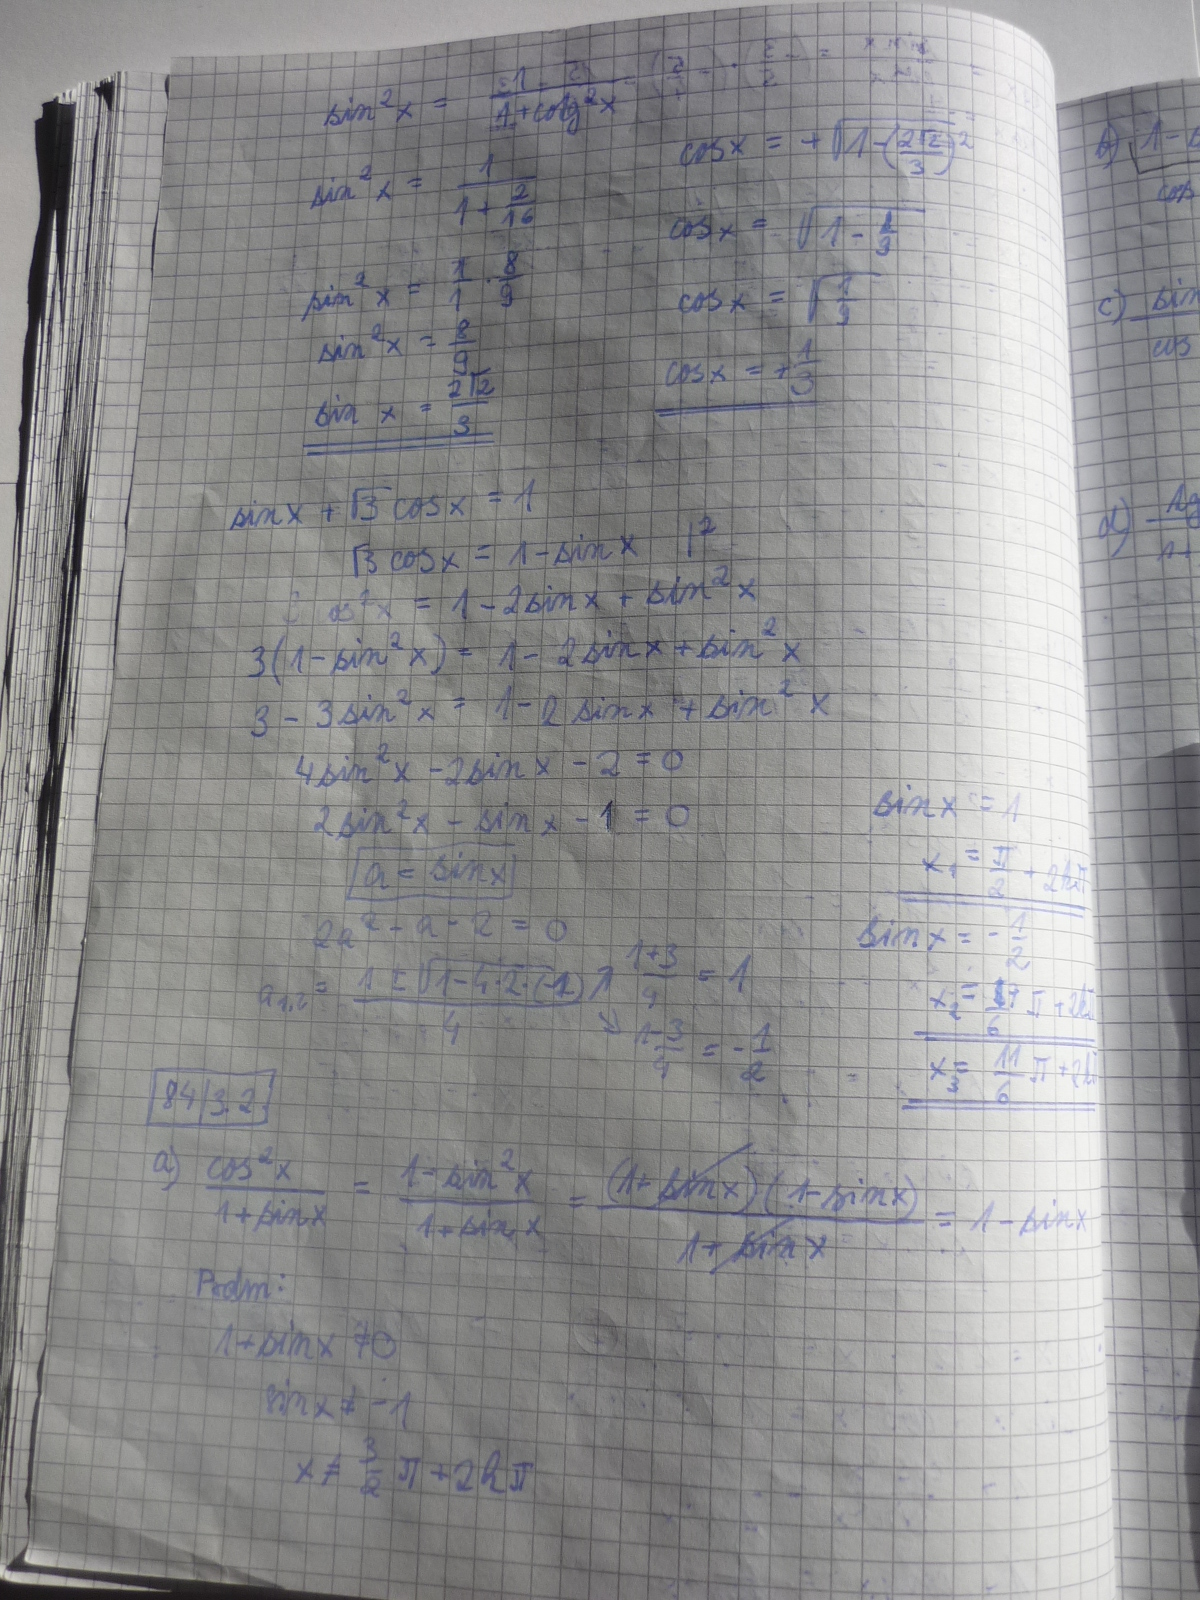 sin²x = 1/(1+cotg²x)
sin²x = 1/(1+2/16)
sin²x = 1/1 · 8/9
sin²x = 8/9
sin x = 2√2/3
cosx = +√(1-(2√2/3)²
cosx = √(1-8/9)
cosx = √(1/9)
cosx = +1/3
sinx + √3 cosx = 1
√3 cosx = 1-sinx |²
cos²x = 1-2sinx + sin²x
3(1-sin²x) = 1- 2sinx + sin²x
3 - 3sin²x = 1-2sinx + sin²x
4sin²x -2sinx -2 = 0
2sin²x - sinx -1 = 0
a = sinx
2a² - a - 2 = 0
a₁,₂ = (1 ± √(1-4·2·(-1)))/4
↗ (1+3)/4 = 1
↘ (1-3)/4 = -1/2
sinx = 1
x₁ = π/2 + 2kπ
sinx = -1/2
x₂ = 7/6 π + 2kπ
x₃ = 11/6 π + 2kπ
84/3.2
a) cos²x/(1+sinx) = (1-sin²x)/(1+sinx) = (1+sinx)(1-sinx)/(1+sinx) = 1-sinx
Podm:
1+sinx ≠ 0
sinx ≠ -1
x ≠ 3/2 π + 2kπ
b)
c) sin
cos
d)